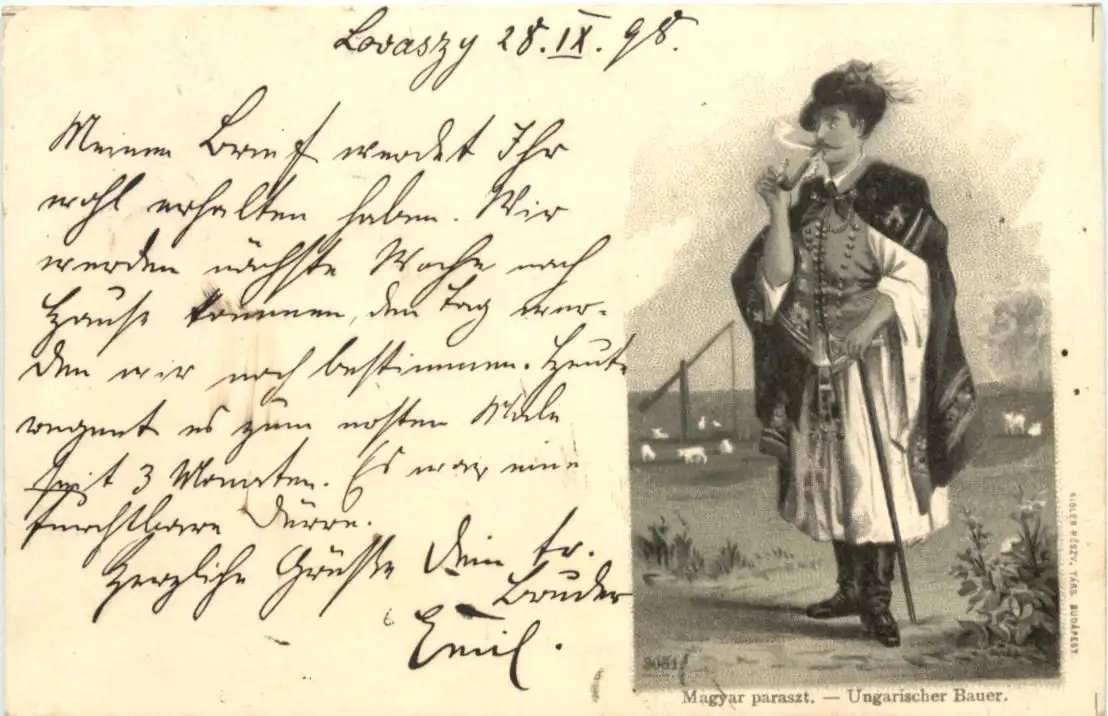 Lovaszy 28.IX.98.
Meinen Brief werdet Ihr
wohl erhalten haben. Wir
werden nächste Woche nach
Hause kommen, den Tag wer-
den wir noch bestimmen. Heute
regent es zum ersten Male
seit 3 Monaten. Es war eine
furchtbare Dürre.
Herzliche Grüsse Dein tr.
Bruder
Emil.
3051
Magyar paraszt. — Ungarischer Bauer.
RIGLER RÉSZV. TÁRS. BUDAPEST.